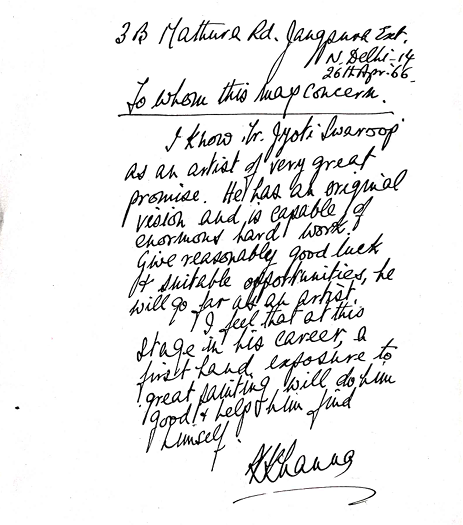 3B Mathura Rd. Jangpura Ext.
N. Delhi-14
26th Apr. 66
To whom this may concern.
I know Mr. Jyoti Swaroop
as an artist of very great
promise. He has an original
vision and is capable of
enormous hard work.
Give reasonably good luck
& suitable opportunities, he
will go far as an artist.
I feel that at this
stage in his career, a
first hand exposure to
great painting will do him
good & help him find
himself.
KKhanna